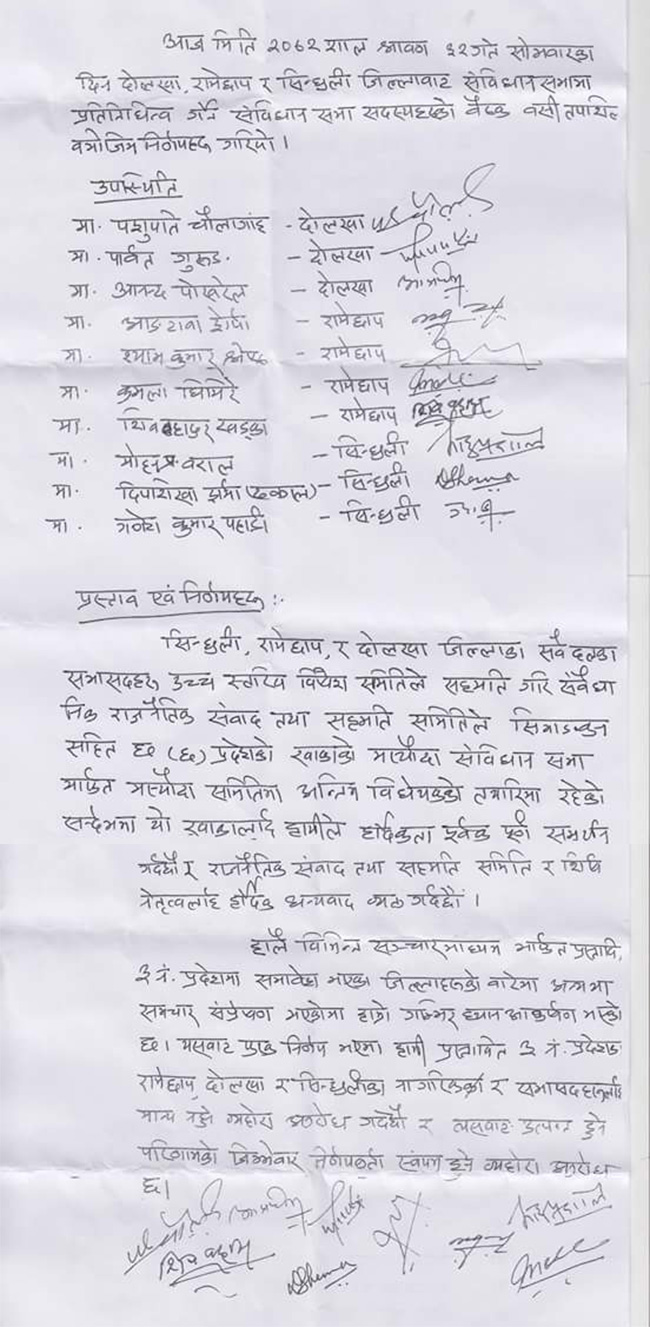 आज मिति २०७२ शाल श्रावण ३२ गते सोमवारका
दिन दोलखा, रामेछाप र सिन्धुली जिल्लावाट संविधान सभामा
प्रतिनिधित्व गर्ने संविधान सभा सदस्यहरुको बैठक वसी तपाशिल
वमोजिम निर्णयहरु गरियो ।
उपस्थिति
मा. पशुपति चौलागांइ - दोलखा
मा. पार्वत गुरुङ - दोलखा
मा. आनन्द पोखरेल - दोलखा
मा. आङटावा शेर्पा - रामेछाप
मा. श्याम कुमार श्रेष्ठ - रामेछाप
मा. कमला घिमिरे - रामेछाप
मा. शिव बहादुर खड्का - रामेछाप
मा. मोहन प्र. वराल - सिन्धुली
मा. दिपशिखा शर्मा (ढकाल) - सिन्धुली
मा. गणेश कुमार पहाडी - सिन्धुली
प्रस्ताव एवं निर्णयहरु :-
सिन्धुली, रामेछाप, र दोलखा जिल्लाका सवै दलका
सभासदहरु, उच्च स्तरिय विशेष समितिले सहमति गरि संवैधा
निक राजनैतिक संवाद तथा सहमति समितिले सिमाङ्कन
सहित छ (६) प्रदेशको खाकाको मस्यौदा संविधान सभा
मार्फत मस्यौदा समितिमा अन्तिम विधेयकको तयारिमा रहेको
सन्दर्भमा यो खाकालाई हामीले हार्दिकता पूर्वक पूर्ण समर्थन
गर्दछौ र राजनैतिक संवाद तथा सहमति समिति र शिर्ष
नेतृत्वलाई हार्दिक धन्यवाद व्यक्त गर्दछौं ।
हालै विभिन्न सञ्चार माध्यम मार्फत प्रस्तावित
३ नं. प्रदेशमा समावेश भएका जिल्लाहरुको वारेमा अन्यथा
समाचार संप्रेषण भएकोमा हाम्रो गम्भिर ध्यान आकर्षण भएको
छ । यसवाट पृथक निर्णय भएमा हामी प्रस्तावित ३ नं. प्रदेशका
रामेछाप, दोलखा र सिन्धुलीका नागरिकको र सभासदहरुलाई
मान्य नहुने व्यहोरा अनुरोध गर्दछौ र त्यसवाट उत्पन्न हुने
परिणामको जिम्मेवार निर्णयकर्ता स्वंयम हुने व्यहोरा अनुरोध
छ ।